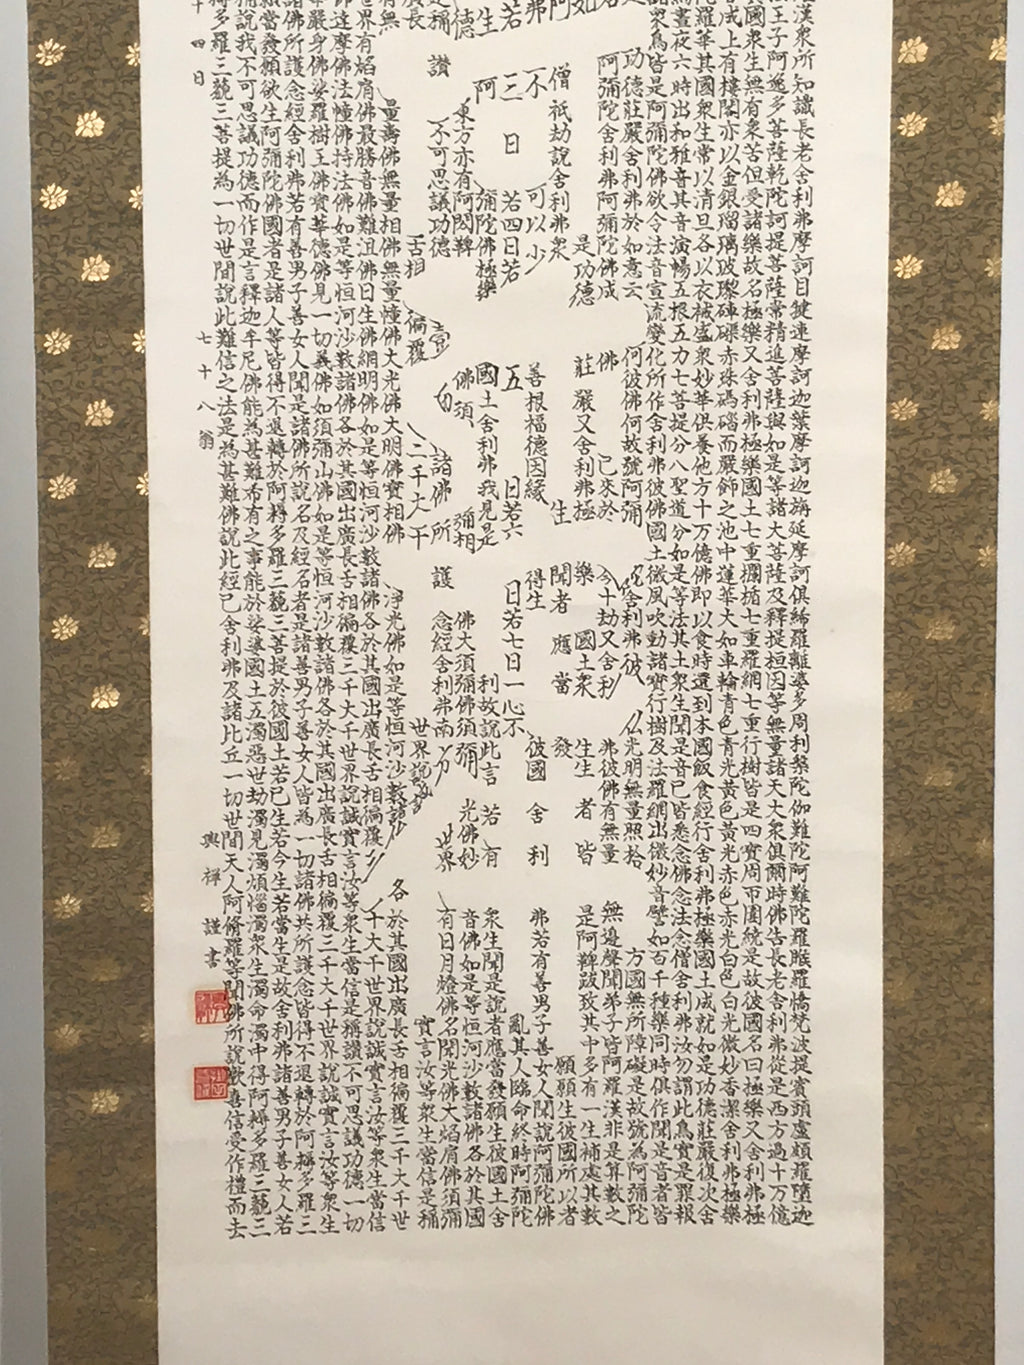 漢衆所知識長老舍利弗摩訶目犍連摩訶迦葉摩訶迦旃延摩訶俱絺羅離婆多周利槃陀伽難陀阿難陀羅睺羅憍梵波提賓頭盧頗羅墮迦
王子阿逸多菩薩乾陀訶提菩薩常精進菩薩與如是等諸大菩薩及釋提桓因等無量諸天大衆俱爾時佛告長老舍利弗從是西方過十萬億
其國衆生無有衆苦但受諸樂故名極樂又舍利弗極樂國土七重欄楯七重羅網七重行樹皆是四寶周帀圍繞是故彼國名曰極樂又舍利弗極
成上有樓閣亦以金銀瑠璃玻瓈硨磲赤珠碼碯而嚴飾之池中蓮華大如車輪青色青光黃色黃光赤色赤光白色白光微妙香潔舍利弗極樂
陀羅華其國衆生常以清旦各以衣裓盛衆妙華供養他方十萬億佛即以食時還到本國飯食經行舍利弗極樂國土成就如是功德莊嚴復次舍
晝夜六時出和雅音其音演暢五根五力七菩提分八聖道分如是等法其土衆生聞是音已皆悉念佛念法念僧舍利弗汝勿謂此鳥實是罪報
衆鳥皆是阿彌陀佛欲令法音宣流變化所作舍利弗彼佛國土微風吹動諸寶行樹及法羅網出微妙音譬如百千種樂同時俱作聞是音者皆
功德莊嚴舍利弗於如意云 何彼佛何故號阿彌 陀舍利弗彼 佛光明無量照拾 方國無所障礙是故號為阿彌陀
阿彌陀舍利弗阿彌陀佛成 佛 已來於 今十劫又舍利 弗彼佛有無量 無邊聲聞弟子皆阿羅漢非是算數之
是功德 莊嚴又舍利弗極 樂 國土衆 生生者皆 是阿鞞跋致其中多有一生補處其數
僧祇劫說舍利弗衆 生 聞者應當 發 願願生彼國所以者
不 可以少 善根福德因緣 得生 彼國 舍利 弗若有善男子善女人聞說阿彌陀佛
三日 若四日若 五 日若六 日若七日一心不 亂其人臨命終時阿彌陀
阿 彌陀佛極樂 國土舍利弗我見是 利故說此言 若有 衆生聞是說者應當發願生彼國土舍
東方亦有阿閦鞞 佛須 彌相 佛大須彌佛須彌 光佛妙 音佛如是等恒河沙數諸佛各於其國
讚 不可思議功德 諸佛所 護 念經舍利弗南 世界 有日月燈佛名聞光佛大焰肩佛須彌
舌相 徧覆 三千大千 世界說誠 實言汝等衆生當信是稱
量壽佛無量相佛無量幢佛大光佛大明佛寶相佛 淨光佛如是等恒河沙數諸 各於其國出廣長舌相徧覆三千大千世
世界有焰肩佛最勝音佛難沮佛日生佛網明佛如是等恒河沙數諸佛各於其國出廣長舌相徧覆三 千大千世界說誠實言汝等衆生當信
佛達摩佛法幢佛持法佛如是等恒河沙數諸佛各於其國出廣長舌相徧覆三千大千世界說誠實言汝等衆生當信是稱讚不可思議功德一切
嚴身佛娑羅樹王佛寶華德佛見一切義佛如須彌山佛如是等恒河沙數諸佛各於其國出廣長舌相徧覆三千大千世界說誠實言汝等衆生
諸佛所護念經舍利弗若有善男子善女人聞是諸佛所說名及經名者是諸善男子善女人皆為一切諸佛共所護念皆得不退轉於阿耨多羅三
當發願欲生阿彌陀佛國者是諸人等皆得不退轉於阿耨多羅三藐三菩提於彼國土若已生若今生若當生是故舍利弗諸善男子善女人若
說我不可思議功德而作是言釋迦牟尼佛能為甚難希有之事能於娑婆國土五濁惡世劫濁見濁煩惱濁衆生濁命濁中得阿耨多羅三藐三
得多羅三藐三菩提為一切世間說此難信之法是為甚難佛說此經已舍利弗及諸比丘一切世間天人阿脩羅等聞佛所說歡喜信受作禮而去
十四日 七十八翁 興禪謹書